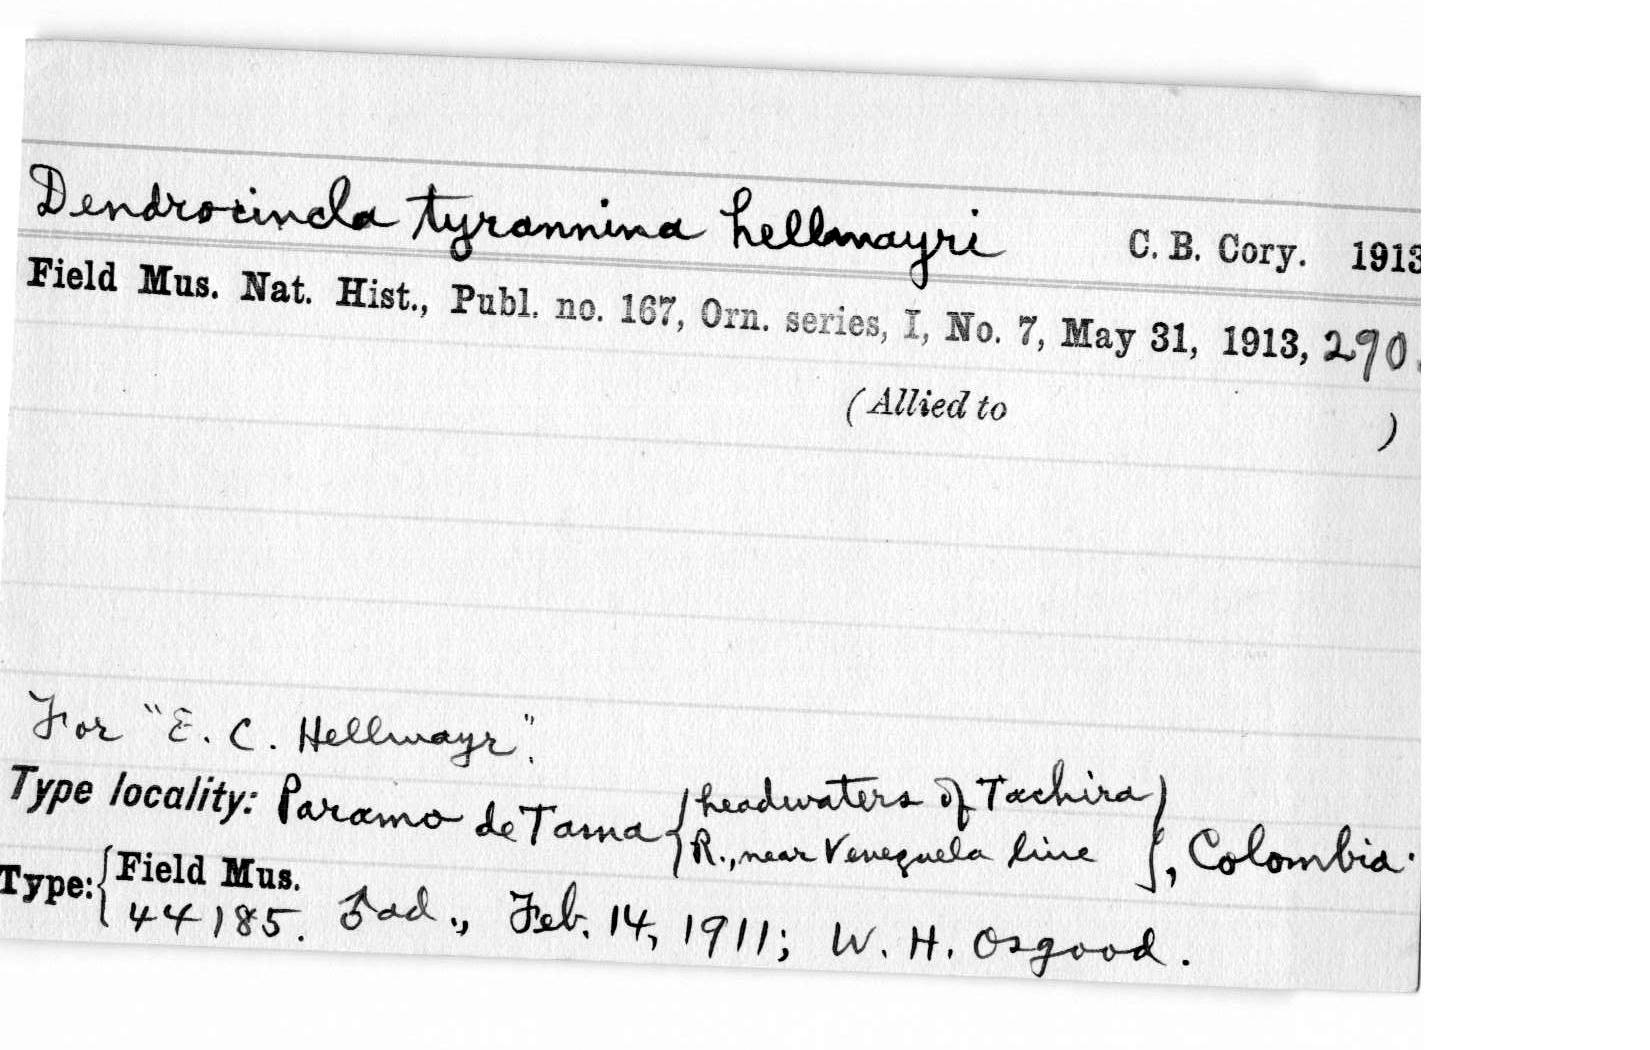 Dendrocincla tyrannina hellmayri C. B. Cory. 1913
Field Mus. Nat. Hist., Publ. no. 167, Orn. series, I, No. 7, May 31, 1913, 290.
(Allied to )
For "E. C. Hellmayr".
Type locality: Paramo de Tama { headwaters of Tachira
R., near Venezuela line }, Colombia.
Type: { Field Mus.
44185. ♂ ad., Feb. 14, 1911; W. H. Osgood.